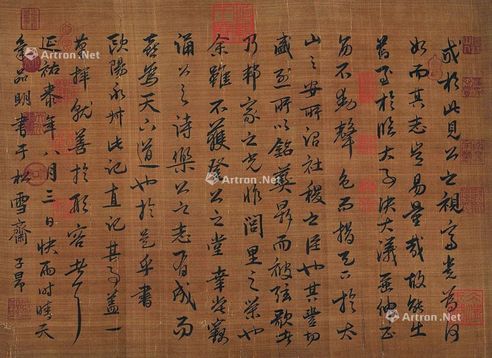 戒於此見公之視富貴為何
如而其志豈易量哉故能出
於臨大事決大議垂紳正
笏不動聲色而措天下於太
山之安所謂社稷之臣也其豐功
盛烈所以銘彝鼎而被弦歌者
乃邦家之光非閭里之榮也
余雖不獲登公之堂幸嘗竊
誦公之詩樂公之志有成而
喜為天下道也於是乎書
歐陽永叔此記直記其事蓋一
揮就善於形容者
延祐年八月三日快雨時晴天
氣明書于松雪齋子昂
Artron.Net
Artron.Net
Artron.Net
Artron.Net
Artron.Net